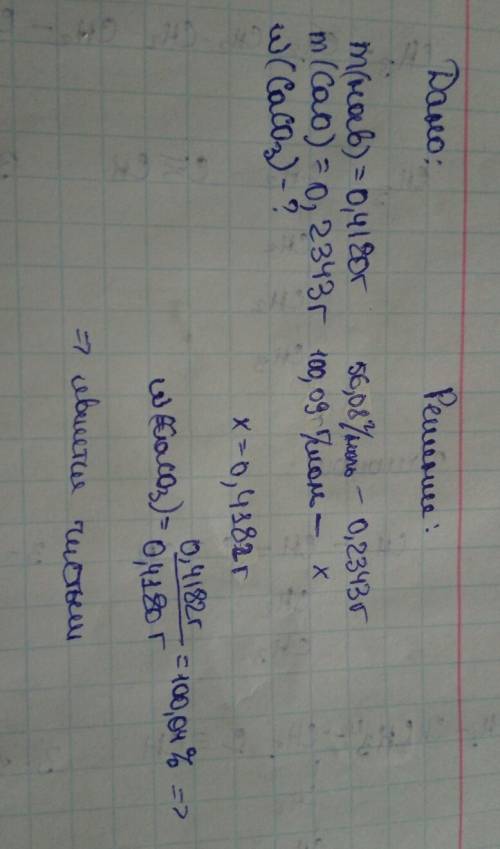 Дано:
m(нав) = 0,4180г
m(CaO) = 0,2343г
w(CaCO3) - ?
Решение:
56,08 г/моль - 0,2343г
100,09 г/моль - x
x = 0,4182г
w(CaCO3) = 0,4182г / 0,4180г = 100,04% =>
=> является чистым